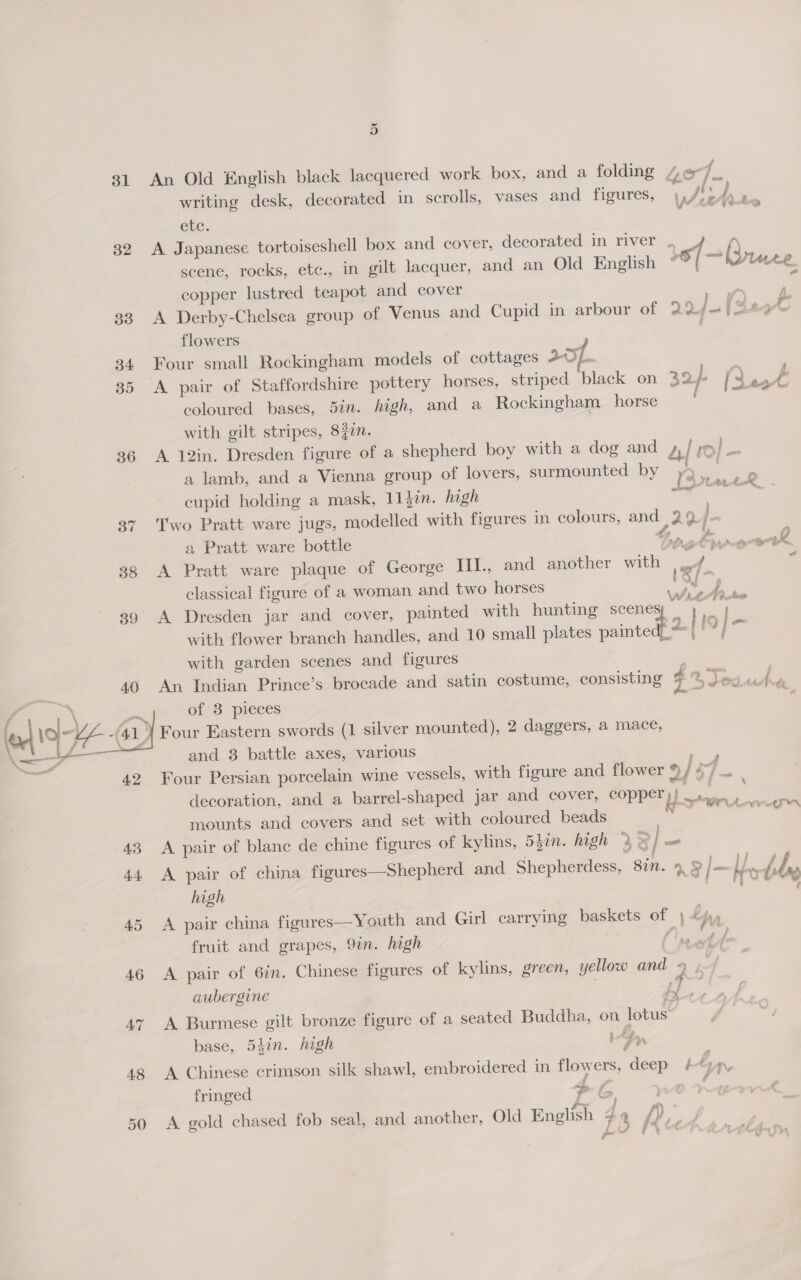 5
31 An Old English black lacquered work box, and a folding
writing desk, decorated in scrolls, vases and figures,
etc.
32 A Japanese tortoiseshell box and cover, decorated in river
scene, rocks, etc., in gilt lacquer, and an Old English Bruce
copper lustred teapot and cover
33 A Derby-Chelsea group of Venus and Cupid in arbour of 22/-
flowers
34 Four small Rockingham models of cottages 20/-
35 A pair of Staffordshire pottery horses, striped black on 32/-
coloured bases, 5in. high, and a Rockingham horse
with gilt stripes, 8¾in.
36 A 12in. Dresden figure of a shepherd boy with a dog and 4/10/-
a lamb, and a Vienna group of lovers, surmounted by Bruce
cupid holding a mask, 11½in. high
37 Two Pratt ware jugs, modelled with figures in colours, and 22/-
a Pratt ware bottle
38 A Pratt ware plaque of George III., and another with 18/-
classical figure of a woman and two horses
39 A Dresden jar and cover, painted with hunting scenes,
with flower branch handles, and 10 small plates painted 2/10/-
with garden scenes and figures
40 An Indian Prince's brocade and satin costume, consisting
of 3 pieces
41 Four Eastern swords (1 silver mounted), 2 daggers, a mace,
and 3 battle axes, various
42 Four Persian porcelain wine vessels, with figure and flower
decoration, and a barrel-shaped jar and cover, copper
mounts and covers and set with coloured beads
43 A pair of blanc de chine figures of kylins, 5½in. high
44 A pair of china figures—Shepherd and Shepherdess, 8in.
high
45 A pair china figures—Youth and Girl carrying baskets of
fruit and grapes, 9in. high
46 A pair of 6in. Chinese figures of kylins, green, yellow and
aubergine
47 A Burmese gilt bronze figure of a seated Buddha, on lotus
base, 5½in. high
48 A Chinese crimson silk shawl, embroidered in flowers, deep
fringed
50 A gold chased fob seal, and another, Old English